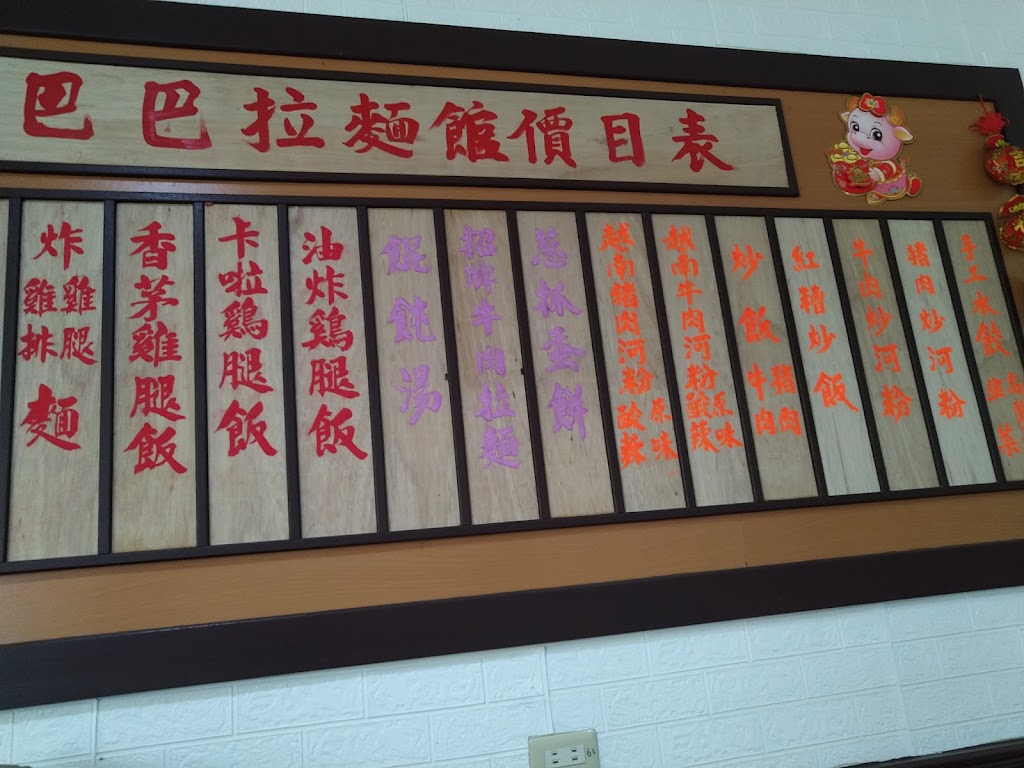 巴巴拉麵館價目表
手工水餃
韭菜
豬肉炒河粉
牛肉炒河粉
紅糟炒飯
炒飯
豬肉
牛肉
越南牛肉河粉
原味
酸辣
越南豬肉河粉
原味
酸辣
蔥抓蛋餅
招牌牛肉拉麵
餛飩湯
油炸鷄腿飯
卡啦鷄腿飯
香茅雞腿飯
炸
雞腿
雞排
麵